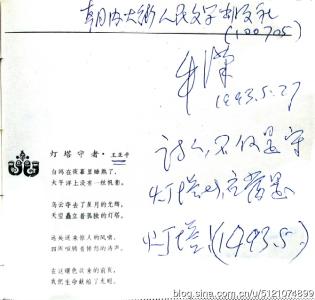 朝内大街人民文学出版社
(100705)
牛汉
1993.5.27
诗人,不仅是守
灯塔的,应当是
灯塔!(1993.5.)
灯塔守者·王亚平
白鸥在夜幕里睡熟了,
太平洋上没有一丝帆影。
乌云夺去了星月的光辉,
天空矗立着孤独的灯塔。
远处送来惊人的风啸,
四周喧腾着愤怒的涛声。
在这暗色攻来的前夜,
我把生命献给了光明。
blog.sina.com.cn/u/5121074899